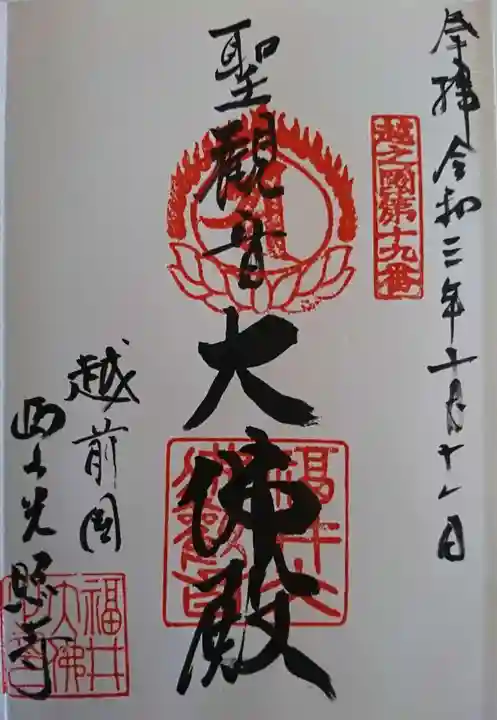 奉拝 令和三年十月十八日
越之国第十九番
聖観音大佛殿
福井大佛観音
越前国
西山光照寺
福井大佛観音